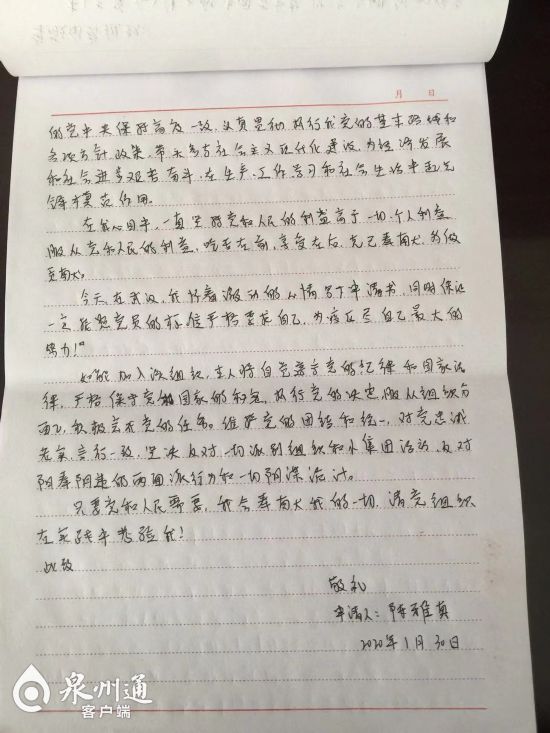 月 日
的党中央保持高度一致,认真贯彻执行党的基本路线和
各项方针、政策,带头参与社会主义现代化建设,为经济发展
和社会进步艰苦奋斗,在生产、工作学习和社会生活中起先
锋模范作用。
在我心目中,一直坚持党和人民的利益高于一切,个人利益
服从党和人民的利益,吃苦在前,享受在后,克己奉献,多做
贡献。
今天,在武汉,我怀着激动的心情写下申请书,同时保证
一定能照党员的标准严格要求自己,为疫区尽自己最大的
努力!"
如能加入党组织,本人将自觉遵守党的纪律和国家法
律,严格保守党和国家的秘密,执行党的决定,服从组织分
配,积极完成党的任务。维护党的团结和统一,对党忠诚
老实,言行一致,坚决反对一切派别组织和小集团活动,反对
阳奉阴违的两面派行为和一切阴谋诡计。
只要党和人民需要,我会奉献我的一切,请党组织
在实践中考验我!
此致
敬礼
申请人:陈雅真
2020年1月30日
泉州通
客户端